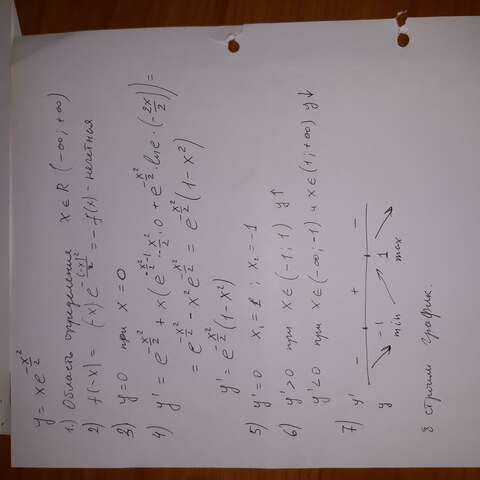 y = x e^{-x²/2}
1) Область определения x ∈ R (-∞; +∞)
2) f(-x) = (-x) e^{-(-x)²/2} = -f(x) - нечетная
3) y=0 при x=0
4) y' = e^{-x²/2} + x(e^{-x²/2 -1} · -x²/2 · 0 + e^{-x²/2} · ln e · (-2x/2)) =
= e^{-x²/2} - x² e^{-x²/2} = e^{-x²/2} (1-x²)
y' = e^{-x²/2} (1-x²)
5) y'=0 x₁=1; x₂=-1
6) y'>0 при x∈(-1;1) y↑
y'<0 при x∈(-∞;-1) и x∈(1;+∞) y↓
7) y' - + -
y -1 1
min max
8 строим график.